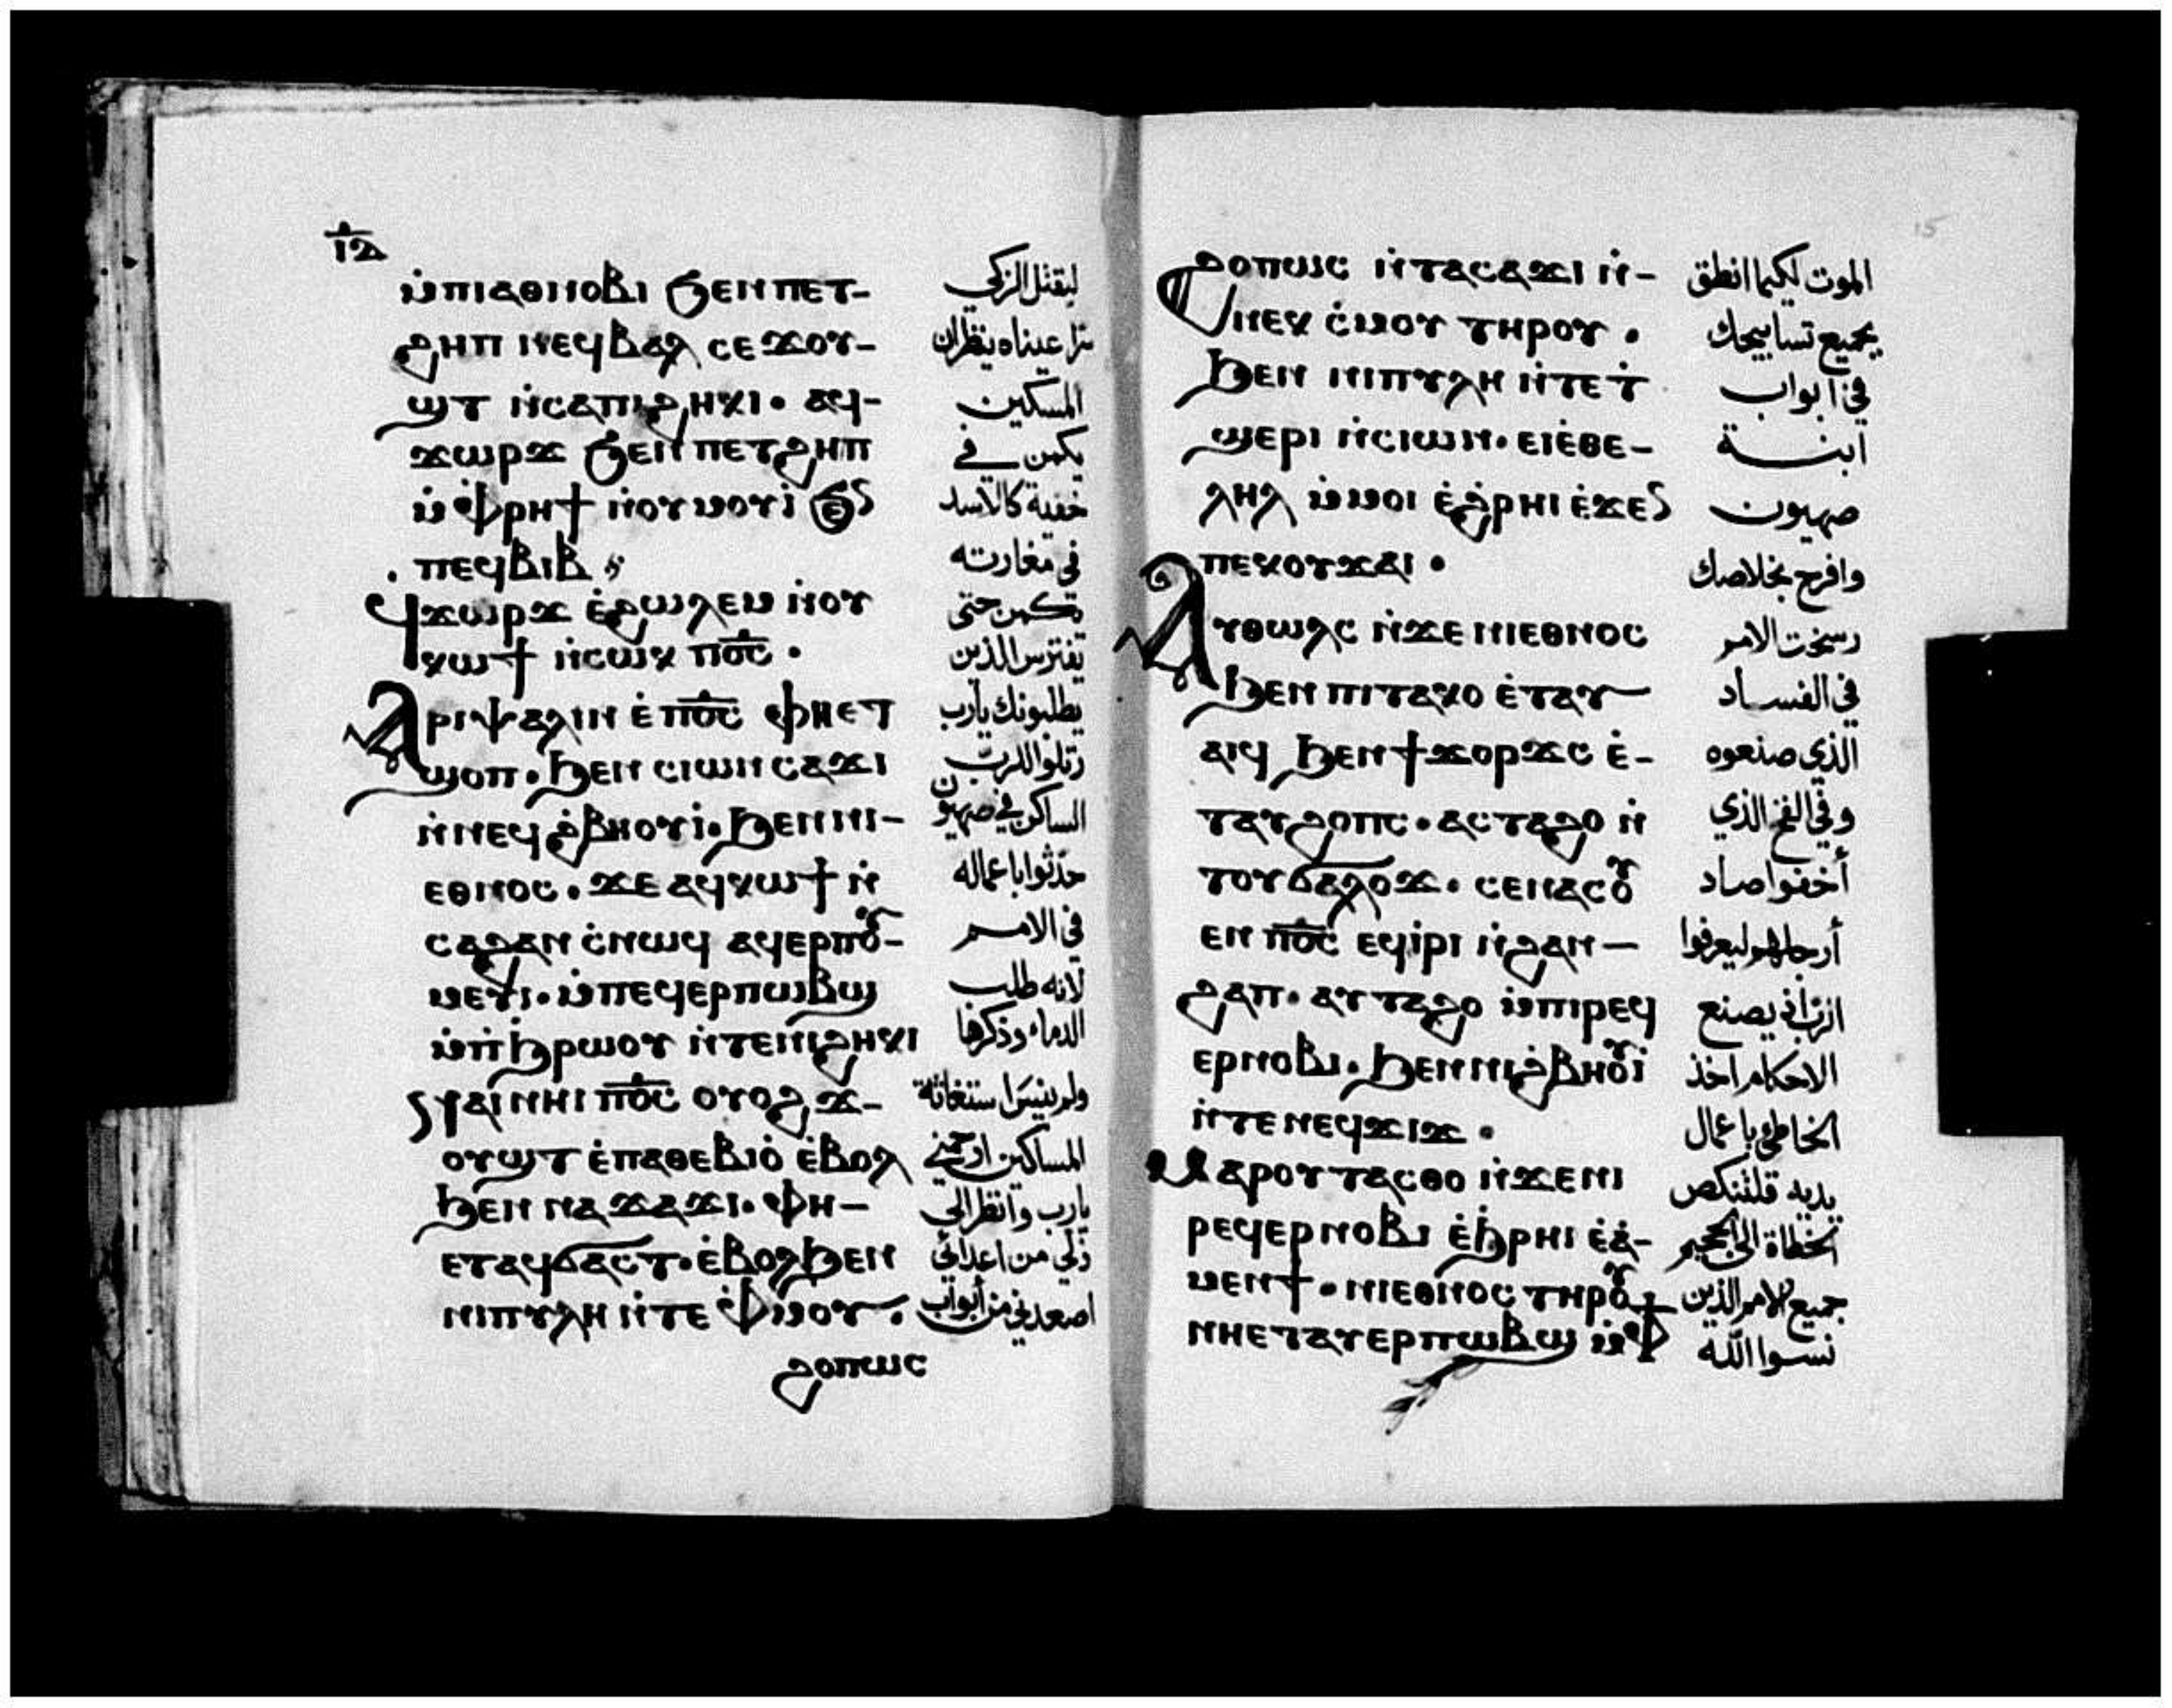 ⲓⲇ
ⲙ̇ⲡⲓⲁⲑⲛⲟⲃⲓ ϧⲉⲛⲡⲉⲧ-
ϩⲏⲡ ⲛⲉϥⲃⲁⲗ ⲥⲉϫⲟⲩ-
ϣⲧ ⲛ̇ⲥⲁⲡⲓϩⲏⲕⲓ. ⲁϥ-
ϫⲱⲣϫ ϧⲉⲛ ⲡⲉⲧϩⲏⲡ
ⲙ̇ⲫⲣⲏϯ ⲛ̇ⲟⲩⲙⲟⲩⲓ̇ ϧⲉⲛ
ⲡⲉϥⲃⲓⲃ
ϥϫⲱⲣϫ ⲉ̇ϩⲱⲗⲉⲙ ⲛ̇ⲟⲩ
ⲕⲱϯ ⲛ̇ⲥⲱⲕ ⲡⲟ̅ⲥ̅.
Ⲁⲣⲓⲯⲁⲗⲓⲛ ⲉ̇ⲡⲟ̅ⲥ̅ ⲫⲏⲉⲧ
ϣⲟⲡ. ϧⲉⲛ ⲥⲓⲱⲛ ⲥⲁϫⲓ
ⲛ̇ⲛⲉϥ ϩ̇ⲃⲏⲟⲩⲓ̇. ϧⲉⲛⲛⲓ-
ⲉⲑⲛⲟⲥ. ϫⲉ ⲁϥⲕⲱϯ ⲛ̇
ⲥⲁϩⲁⲛ ⲥ̇ⲛⲱϥ ⲁϥⲉⲣⲡⲟⲩ-
ⲙⲉⲩⲓ. ⲙ̇ⲡⲉϥⲉⲣⲡⲱⲃϣ
ⲙ̇ⲡ̇ϧⲣⲱⲟⲩ ⲛ̇ⲧⲉⲛⲓϩⲏⲕⲓ
ⲛⲁⲓ ⲛⲏⲓ ⲡⲟ̅ⲥ̅ ⲟⲩⲟϩ ϫ-
ⲟⲩϣⲧ ⲉ̇ⲡⲁⲑⲉⲃⲓⲟ̇ ⲉ̇ⲃⲟⲗ
ϧⲉⲛ ⲛⲁϫⲁϫⲓ. ⲫⲏ-
ⲉⲧⲁϥϭⲁⲥⲧ. ⲉ̇ⲃⲟⲗϧⲉⲛ
ⲛⲓⲡⲩⲗⲏ ⲛ̇ⲧⲉ ⲫ̇ⲙⲟⲩ.
ϩⲟⲡⲱⲥ
ليقتل الزكي
سرا عيناه ينظران
المسكين
يكمن في
خفية كالاسد
في مغارته
يكمن حتى
يفترس الذين
يطلبونك يارب
رتلوا للرب
الساكن في صهيون
حدثوا باعماله
في الامم
لانه طلب
الدماء وذكرها
ولم ينس استغاثة
المساكين ارحمني
يارب وانظر الي
ذلي من اعدائي
اصعدني من أبواب
15
ϩⲟⲡⲱⲥ ⲛ̇ⲧⲁⲥⲁϫⲓ ⲛ̇-
ⲛⲉⲕ ⲥ̇ⲙⲟⲩ ⲧⲏⲣⲟⲩ.
ϧⲉⲛ ⲛⲓⲡⲩⲗⲏ ⲛ̇ⲧⲉ ⲧ̇
ϣⲉⲣⲓ ⲛ̇ⲥⲓⲱⲛ. ⲉⲓⲉ̇ⲑⲉ-
ⲗⲏⲗ ⲙ̇ⲙⲟⲓ ⲉ̇ϩ̇ⲣⲏⲓ ⲉ̇ϫⲉⲛ
ⲡⲉⲕⲟⲩϫⲁⲓ.
Ⲁⲩⲑⲱⲗⲥ ⲛ̇ϫⲉ ⲛⲓⲉⲑⲛⲟⲥ
ϧⲉⲛ ⲡⲓⲧⲁⲕⲟ ⲉ̇ⲧⲁⲩ
ⲁⲓϥ ϧⲉⲛ ϯϫⲟⲣϫⲥ ⲉ̇-
ⲧⲁⲩϩⲟⲡⲥ. ⲁⲥⲧⲁϩⲟ ⲛ̇
ⲧⲟⲩϭⲁⲗⲟϫ. ⲥⲉⲛⲁⲥⲟⲩ
ⲉⲛ ⲡⲟ̅ⲥ̅ ⲉϥⲓ̇ⲣⲓ ⲛ̇ϩⲁⲛ
ϩⲁⲡ. ⲁⲩⲧⲁϩⲟ ⲙ̇ⲡⲓⲣⲉϥ
ⲉⲣⲛⲟⲃⲓ. ϧⲉⲛⲛⲓϩ̇ⲃⲏⲟⲩⲓ̇
ⲛ̇ⲧⲉ ⲛⲉϥϫⲓϫ.
Ⲙⲁⲣⲟⲩⲧⲁⲥⲑⲟ ⲛ̇ϫⲉⲛⲓ
ⲣⲉϥⲉⲣⲛⲟⲃⲓ ⲉ̇ϧ̇ⲣⲏⲓ ⲉ̇ⲁ̇-
ⲙⲉⲛϯ. ⲛⲓⲉⲑⲛⲟⲥ ⲧⲏⲣⲟⲩ
ⲛⲏⲉⲧⲁⲩⲉⲣⲡⲱⲃϣ ⲙ̇ⲫϯ
الموت ليكما انطق
بجميع تسابيحك
في ابواب
ابنة
صهيون
وافرح بخلاصك
رسخت الامم
في الفساد
الذي صنعوه
وفي الفخ الذي
أخفوا صاد
أرجلهم ليعرفوا
الرب اذ يصنع
الاحكام اخذ
الخاطئ باعمال
يديه فلتنكص
الخطاة الى الجحيم
جميع الامم الذين
نسوا الله